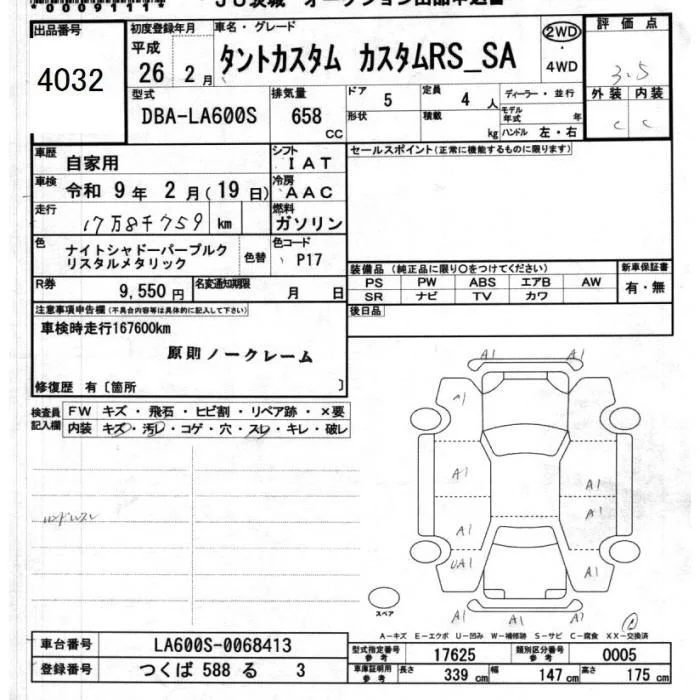 00091114
JU茨城 オークション出品申込書
出品番号
4032
初度登録年月
平成
26 2月
車名・グレード
タントカスタム カスタムRS_SA
2WD
・
4WD
評価点
3.5
外装 内装
C C
型式
DBA-LA600S
排気量
658
cc
ドア
5
定員
4 人
ディーラー・並行
形状
積載
kg
モデル年式 年
ハンドル 左・右
車歴
自家用
シフト
IAT
セールスポイント(正常に機能するものに限ります)
車検
令和 9年 2月(19日)
冷房
AAC
走行
17万8千759 km
燃料
ガソリン
色
ナイトシャドーパープルク
リスタルメタリック
色替
色コード
P17
装備品(純正品に限り○をつけてください)
新車保証書
PS PW ABS エアB AW
有・無
SR ナビ TV カワ
R券
9,550円
名変通知期限
月 日
後日品
注意事項申告欄(不具合内容等は具体的に記入して下さい)
車検時走行167600km
原則ノークレーム
修復歴 有〔箇所 〕
検査員
記入欄
FW キズ・飛石・ヒビ割・リペア跡・×要
内装 キズ・汚レ・コゲ・穴・スレ・キレ・破レ
A1 A1
A1
A1 A1
A1
A1
UA1 A1
A1 A1
C
スペア
A-キズ E-エクボ U-凹み W-補修跡 S-サビ C-腐食 XX-交換済
車台番号
LA600S-0068413
型式指定番号
参考
17625
類別区分番号
参考
0005
登録番号
つくば 588 る 3
車庫証明用
参考
長さ
339 cm
幅
147 cm
高さ
175 cm